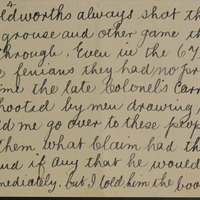 4
ldworths always shot th
grouse and other game th
through. Even in the 67
e fenians they had no pr
me the late Colonel's Carr
hooted by men drawing
ld me go over to these peop
them, what Claim had th
nd if any that he would
mediately, but I told him the boo